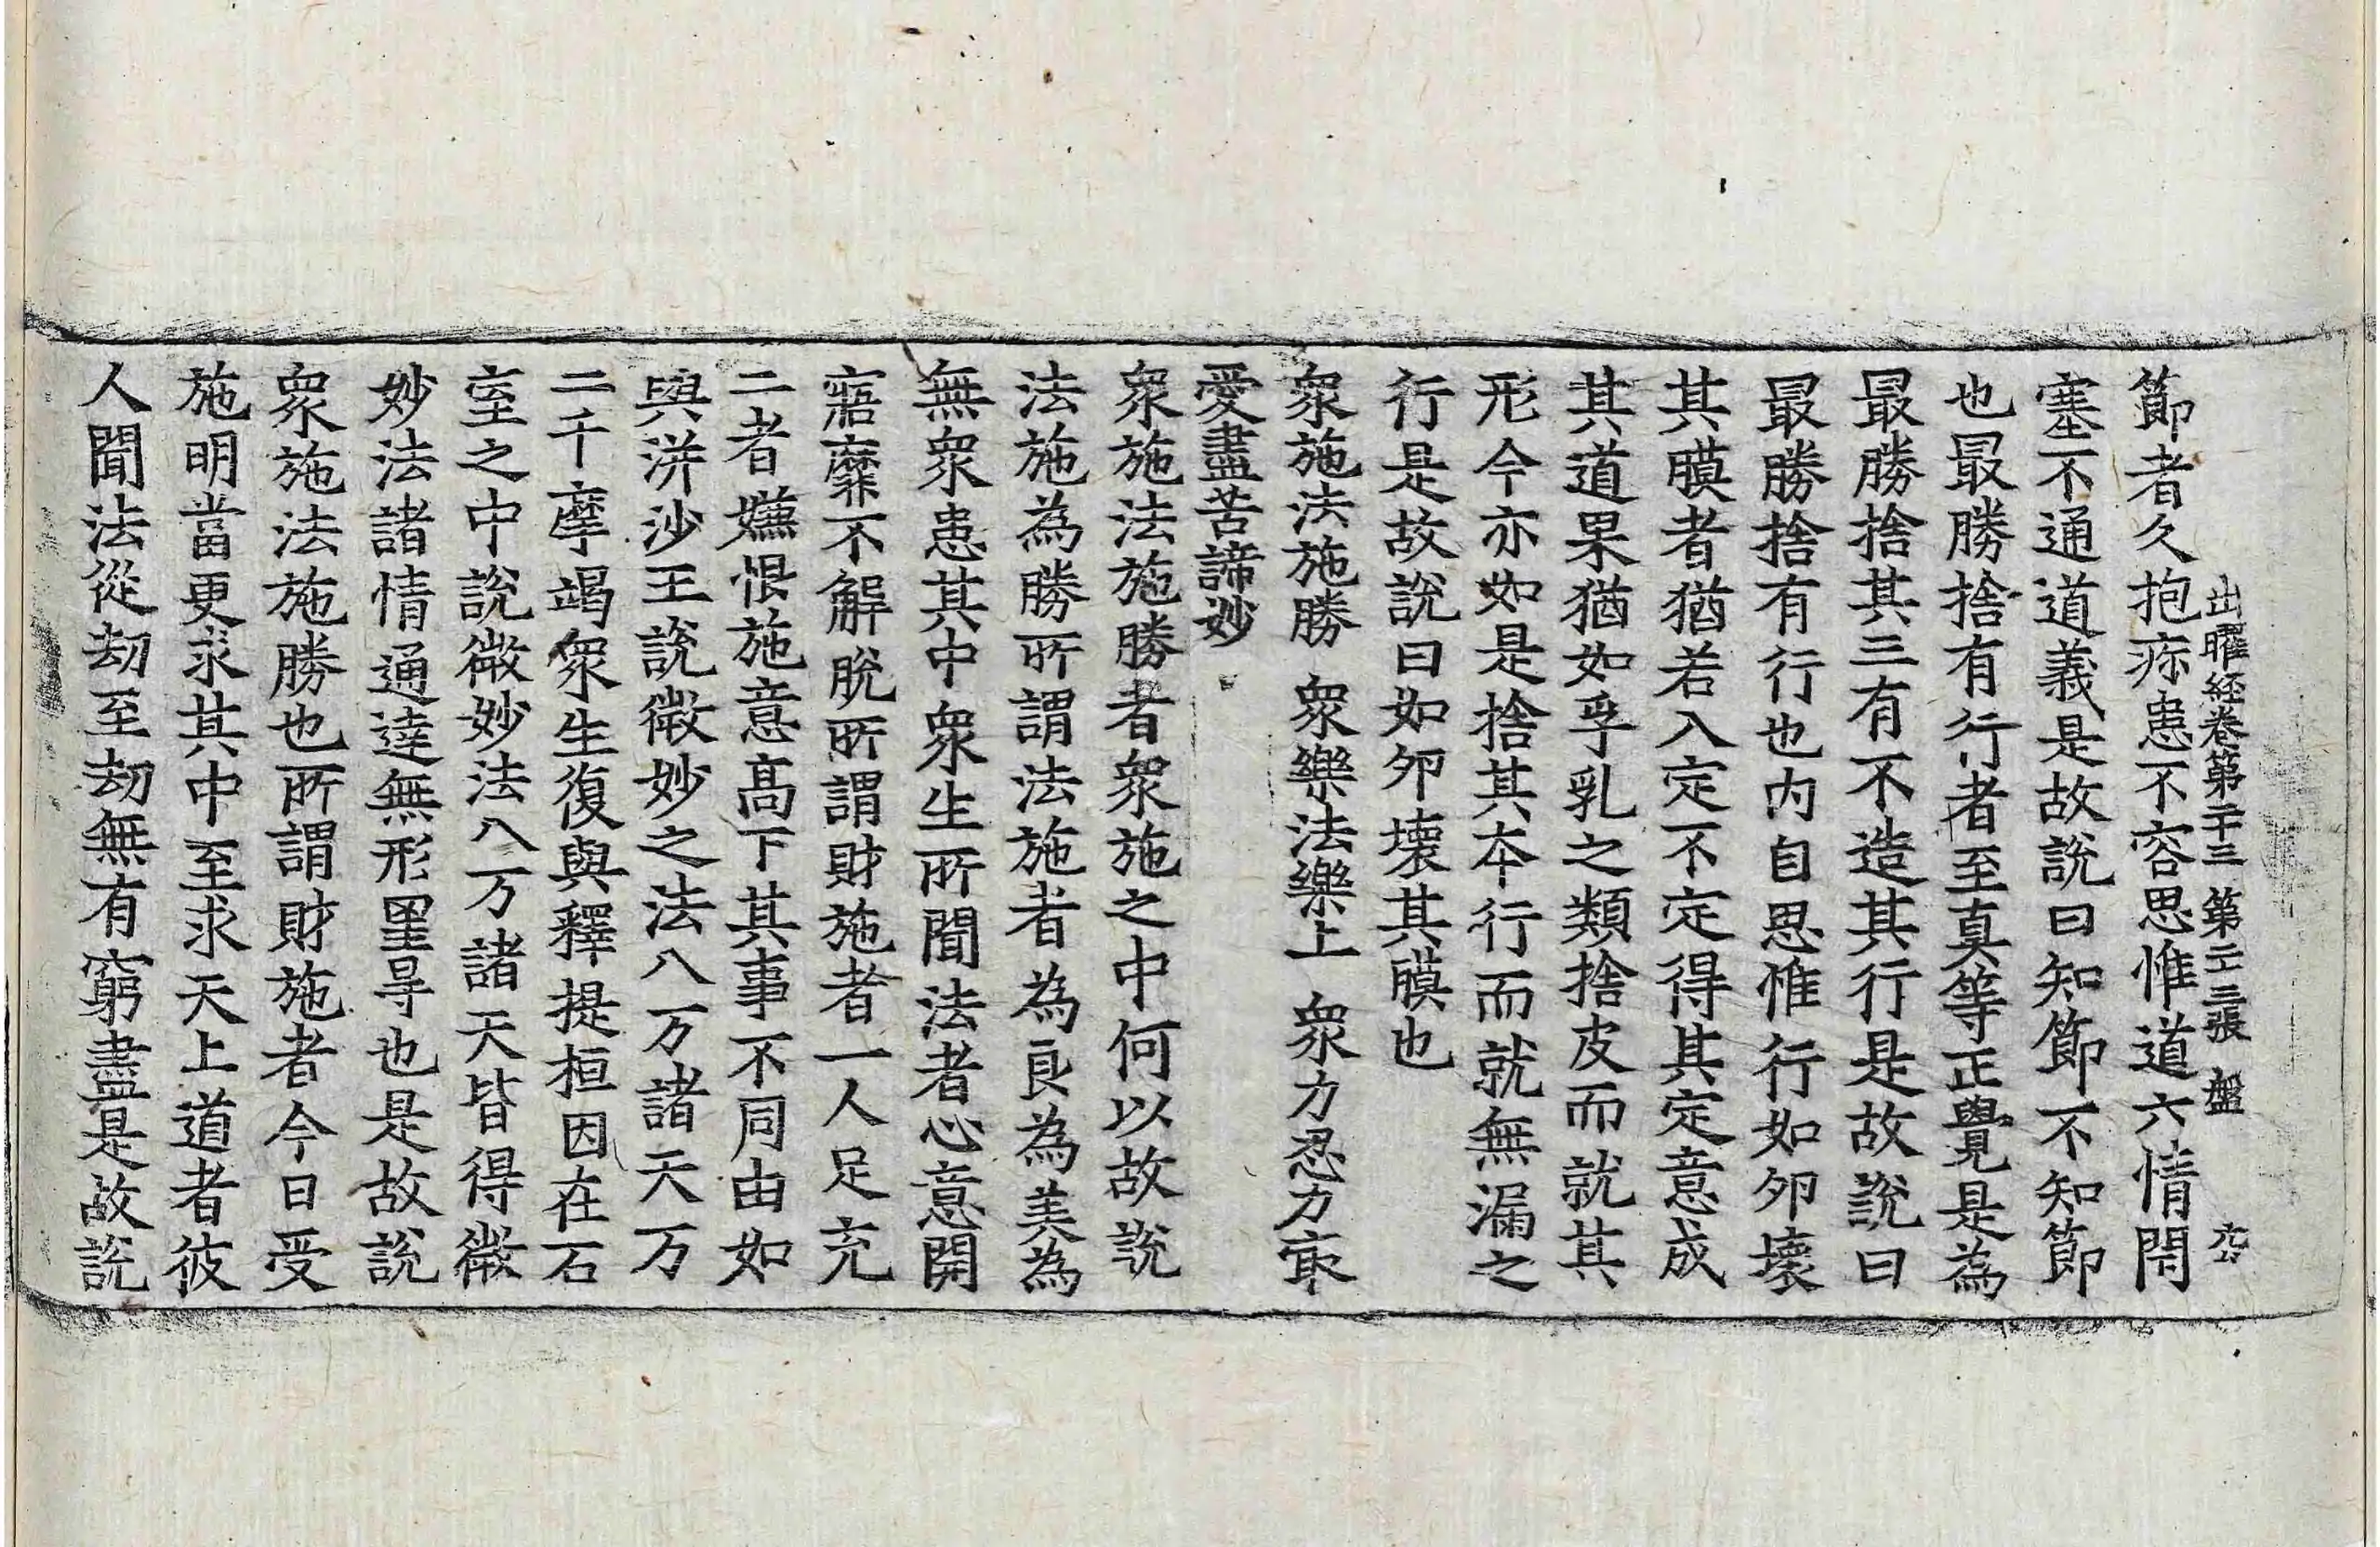 出曜経巻第二十三 第二三張 盤
節者久抱疹患不容思惟道六情閇
塞不通道義是故說曰知節不知節
也最勝捨有行者至真等正覺是為
最勝捨其三有不造其行是故說曰
最勝捨有行也內自思惟行如卵壞
其膜者猶若入定不定得其定意成
其道果猶如孚乳之類捨皮而就其
形今亦如是捨其本行而就無漏之
行是故說曰如卵壞其膜也
衆施法施勝 衆樂法樂上 衆力忍力㝡
愛盡苦諦妙
衆施法施勝者衆施之中何以故說
法施為勝所謂法施者為良為美為
無衆患其中衆生所聞法者心意開
寤靡不解脫所謂財施者一人足充
二者嫌恨施意高下其事不同由如
與洴沙王說微妙之法八万諸天万
二千摩竭衆生復與釋提桓因在石
室之中說微妙法八万諸天皆得微
妙法諸情通達無形罣㝵也是故說
衆施法施勝也所謂財施者今日受
施明當更求其中至求天上道者彼
人聞法從劫至劫無有窮盡是故說